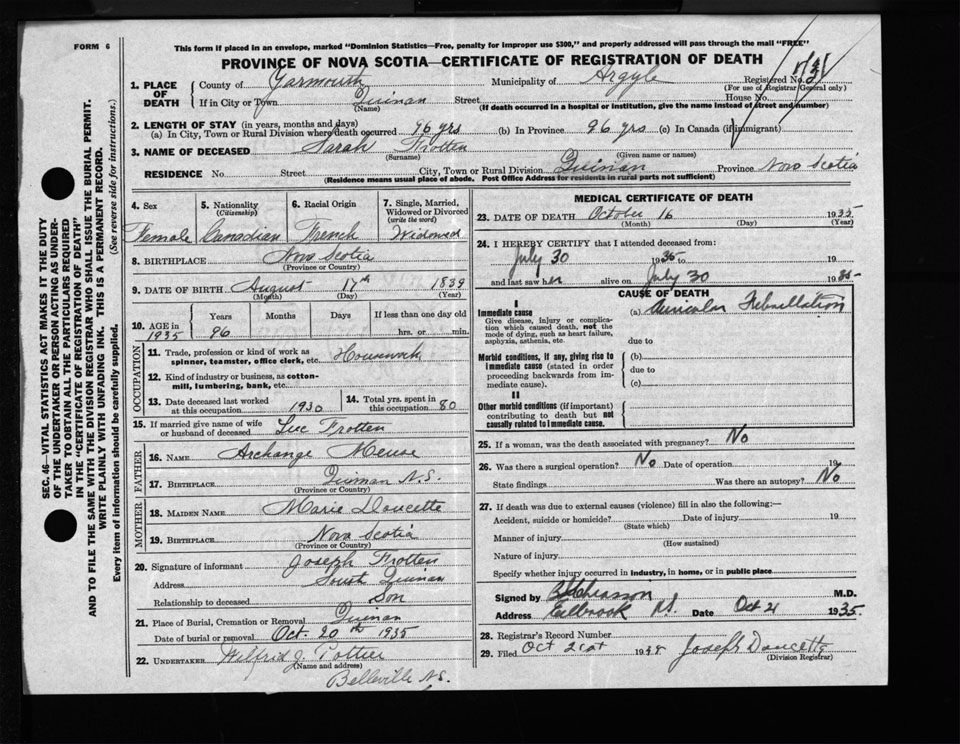 FORM 6
This form if placed in an envelope, marked "Dominion Statistics—Free, penalty for improper use $300," and properly addressed will pass through the mail "FREE"
PROVINCE OF NOVA SCOTIA—CERTIFICATE OF REGISTRATION OF DEATH
SEC. 46—VITAL STATISTICS ACT MAKES IT THE DUTY
OF THE UNDERTAKER OR PERSON ACTING AS UNDER-
TAKER TO OBTAIN ALL THE PARTICULARS REQUIRED
IN THE "CERTIFICATE OF REGISTRATION OF DEATH"
AND TO FILE THE SAME WITH THE DIVISION REGISTRAR WHO SHALL ISSUE THE BURIAL PERMIT.
WRITE PLAINLY WITH UNFADING INK. THIS IS A PERMANENT RECORD.
Every item of information should be carefully supplied. (See reverse side for instructions.)
1. PLACE OF DEATH
County of Yarmouth Municipality of Argyle Registered No.
(For use of Registrar General only)
If in City or Town Quinan Street House No.
(Name) (If death occurred in a hospital or institution, give the name instead of street and number)
2. LENGTH OF STAY (in years, months and days)
(a) In City, Town or Rural Division where death occurred 96 yrs (b) In Province 96 yrs (c) In Canada (if immigrant)
3. NAME OF DECEASED Sarah Frotten
(Surname) (Given name or names)
RESIDENCE No. Street City, Town or Rural Division Quinan Province Nova Scotia
(Residence means usual place of abode. Post Office Address for residents in rural parts not sufficient)
4. Sex Female
5. Nationality (Citizenship) Canadian
6. Racial Origin French
7. Single, Married, Widowed or Divorced (write the word) Widowed
8. BIRTHPLACE Nova Scotia
(Province or Country)
9. DATE OF BIRTH August 17th 1839
(Month) (Day) (Year)
10. AGE in 1935 Years 96 Months Days If less than one day old hrs. or min.
OCCUPATION
11. Trade, profession or kind of work as spinner, teamster, office clerk, etc. Housework
12. Kind of industry or business, as cotton-mill, lumbering, bank, etc.
13. Date deceased last worked at this occupation 1930
14. Total yrs. spent in this occupation 80
15. If married give name of wife or husband of deceased Luc Frotten
FATHER
16. NAME Archange Meuse
17. BIRTHPLACE Quinan N.S.
(Province or Country)
MOTHER
18. MAIDEN NAME Marie Doucette
19. BIRTHPLACE Nova Scotia
(Province or Country)
20. Signature of informant Joseph Frotten
Address South Quinan
Relationship to deceased Son
21. Place of Burial, Cremation or Removal Quinan
Date of burial or removal Oct. 20th 1935
22. UNDERTAKER Wilfrid J. Pottier
(Name and address)
Belleville N.S.
MEDICAL CERTIFICATE OF DEATH
23. DATE OF DEATH October 16 1935
(Month) (Day) (Year)
24. I HEREBY CERTIFY that I attended deceased from:
July 30 19 to 19
and last saw her alive on July 30 1935
CAUSE OF DEATH
I
Immediate cause (a) Auricular Febrillation
Give disease, injury or complication which caused death, not the mode of dying, such as heart failure, asphyxia, asthenia, etc.
due to
Morbid conditions, if any, giving rise to immediate cause (stated in order proceeding backwards from immediate cause).
(b)
due to
(c)
II
Other morbid conditions (if important) contributing to death but not causally related to immediate cause.
25. If a woman, was the death associated with pregnancy? No
26. Was there a surgical operation? No Date of operation 19
State findings Was there an autopsy? No
27. If death was due to external causes (violence) fill in also the following:—
Accident, suicide or homicide? Date of injury 19
(State which)
Manner of injury
(How sustained)
Nature of injury
Specify whether injury occurred in industry, in home, or in public place
Signed by M.D.
Address Eelbrook N.S. Date Oct 21 1935
28. Registrar's Record Number
29. Filed Oct 21st 19 Joseph Doucette
(Division Registrar)